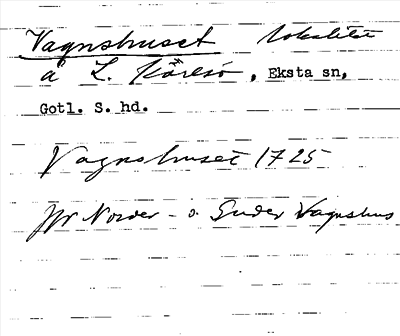 Vagnshuset lokalitet
å L. Karlsö, Eksta sn,
Gotl. S. hd.
Vagnshuset 1725
Jfr Norder- o. Suder Vagnshus